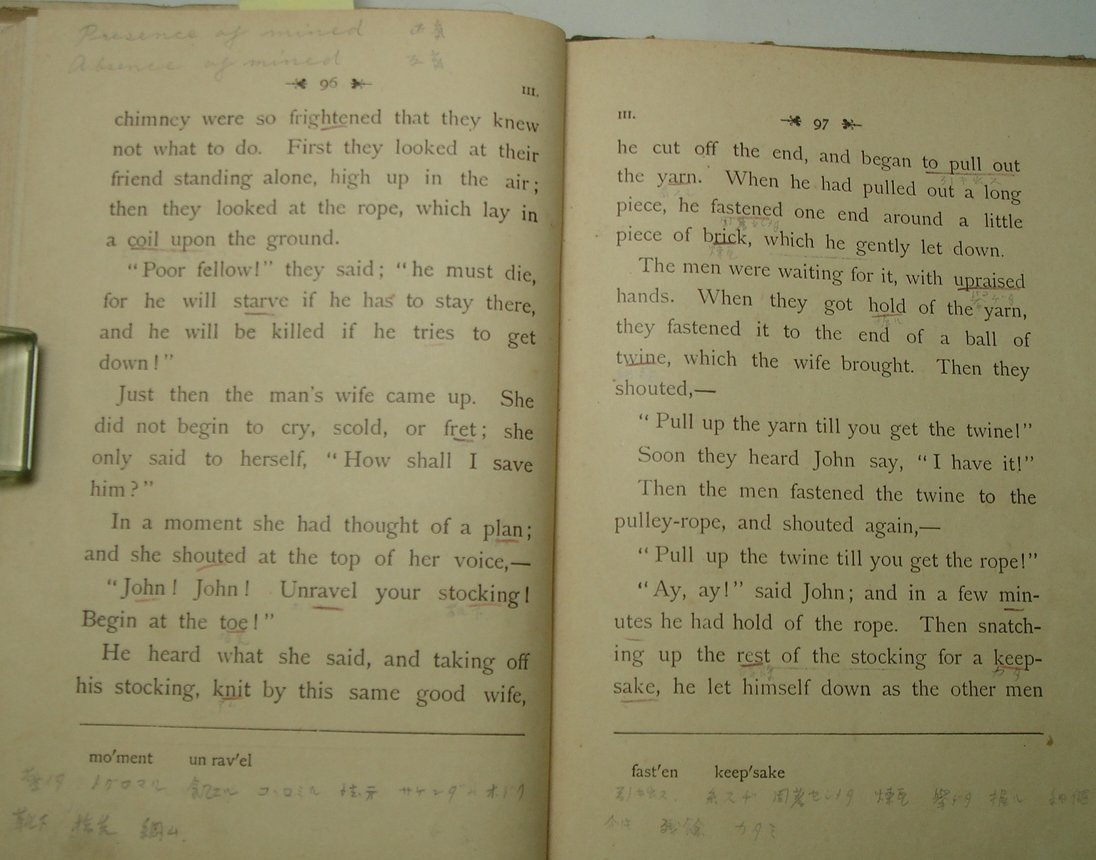 Presence of mined
Absence of mined
96
III.
chimney were so frightened that they knew
not what to do. First they looked at their
friend standing alone, high up in the air;
then they looked at the rope, which lay in
a coil upon the ground.
“Poor fellow!” they said; “he must die,
for he will starve if he has to stay there,
and he will be killed if he tries to get
down!”
Just then the man’s wife came up. She
did not begin to cry, scold, or fret; she
only said to herself, “How shall I save
him?”
In a moment she had thought of a plan;
and she shouted at the top of her voice,—
“John! John! Unravel your stocking!
Begin at the toe!”
He heard what she said, and taking off
his stocking, knit by this same good wife,
mo′ment un rav′el
III.
97
he cut off the end, and began to pull out
the yarn. When he had pulled out a long
piece, he fastened one end around a little
piece of brick, which he gently let down.
The men were waiting for it, with upraised
hands. When they got hold of the yarn,
they fastened it to the end of a ball of
twine, which the wife brought. Then they
shouted,—
“Pull up the yarn till you get the twine!”
Soon they heard John say, “I have it!”
Then the men fastened the twine to the
pulley-rope, and shouted again,—
“Pull up the twine till you get the rope!”
“Ay, ay!” said John; and in a few min-
utes he had hold of the rope. Then snatch-
ing up the rest of the stocking for a keep-
sake, he let himself down as the other men
fast′en keep′sake
カタミ